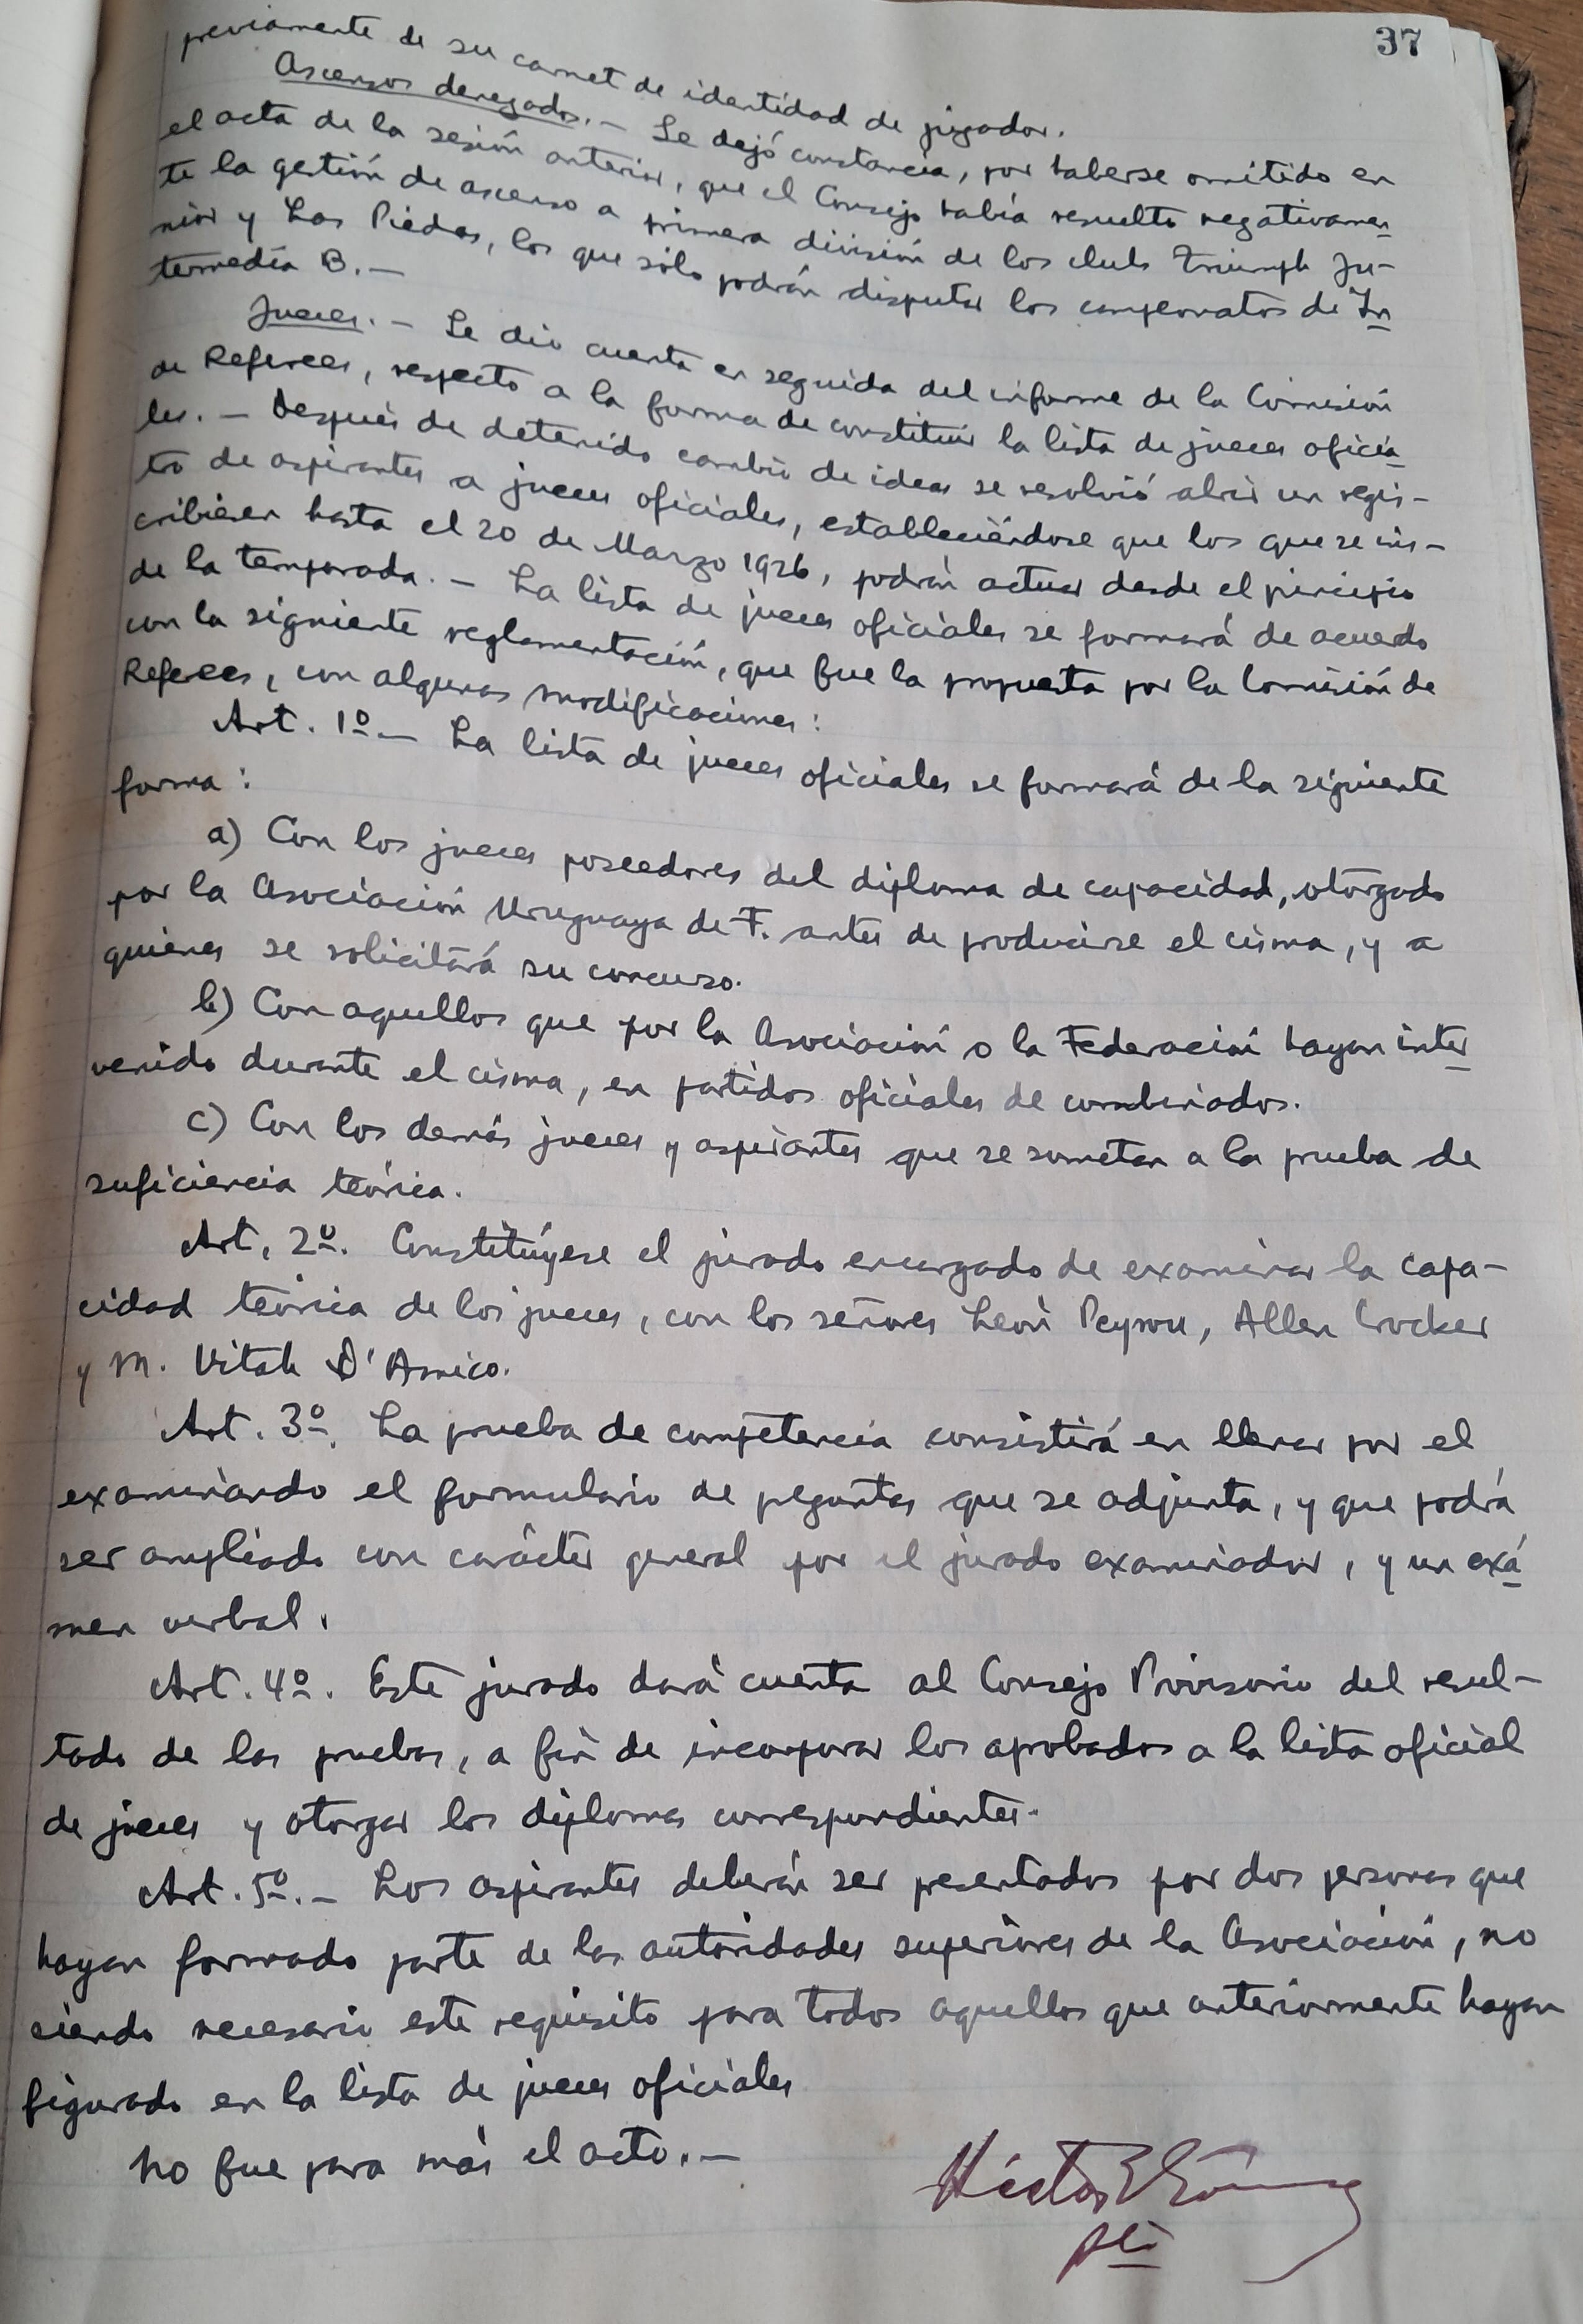 37
previamente de su carnet de identidad de jugador.
Ascensos denegados. — Se dejó constancia, por haberse omitido en
el acta de la sesión anterior, que el Consejo había resuelto negativamen
te la gestión de ascenso a primera división de los clubs Triumph Ju-
nior y Las Piedras, los que sólo podrán disputar los campeonatos de In
termedia B. —
Jueces. — Se dio cuenta en seguida del informe de la Comisión
de Referees, respecto a la forma de constituir la lista de jueces oficia
les. — Después de detenido cambio de ideas se resolvió abrir un regis-
tro de aspirantes a jueces oficiales, estableciéndose que los que se ins-
cribiesen hasta el 20 de Marzo 1926, podrán actuar desde el principio
de la temporada. — La lista de jueces oficiales se formará de acuerdo
con la siguiente reglamentación, que fue la propuesta por la Comisión de
Referees, con algunas modificaciones:
Art. 1º — La lista de jueces oficiales se formará de la siguiente
forma:
a) Con los jueces poseedores del diploma de capacidad, otorgado
por la Asociación Uruguaya de F. antes de producirse el cisma, y a
quienes se solicitará su concurso.
b) Con aquellos que por la Asociación o la Federación hayan inter
venido durante el cisma, en partidos oficiales de combinados.
c) Con los demás jueces y aspirantes que se sometan a la prueba de
suficiencia teórica.
Art. 2º. Constitúyese el jurado encargado de examinar la capa-
cidad teórica de los jueces, con los señores León Peyrou, Allen Crocker
y M. Vitale D'Amico.
Art. 3º. La prueba de competencia consistirá en llenar por el
examinando el formulario de preguntas que se adjunta, y que podrá
ser ampliado con carácter general por el jurado examinador, y un exá
men verbal.
Art. 4º. Este jurado dará cuenta al Consejo Provisorio del resul-
tado de las pruebas, a fin de incorporar los aprobados a la lista oficial
de jueces y otorgar los diplomas correspondientes.
Art. 5º. — Los aspirantes deberán ser presentados por dos personas que
hayan formado parte de las autoridades superiores de la Asociación, no
siendo necesario este requisito para todos aquellos que anteriormente hayan
figurado en la lista de jueces oficiales
No fue para más el acto. —
Héctor R Gómez